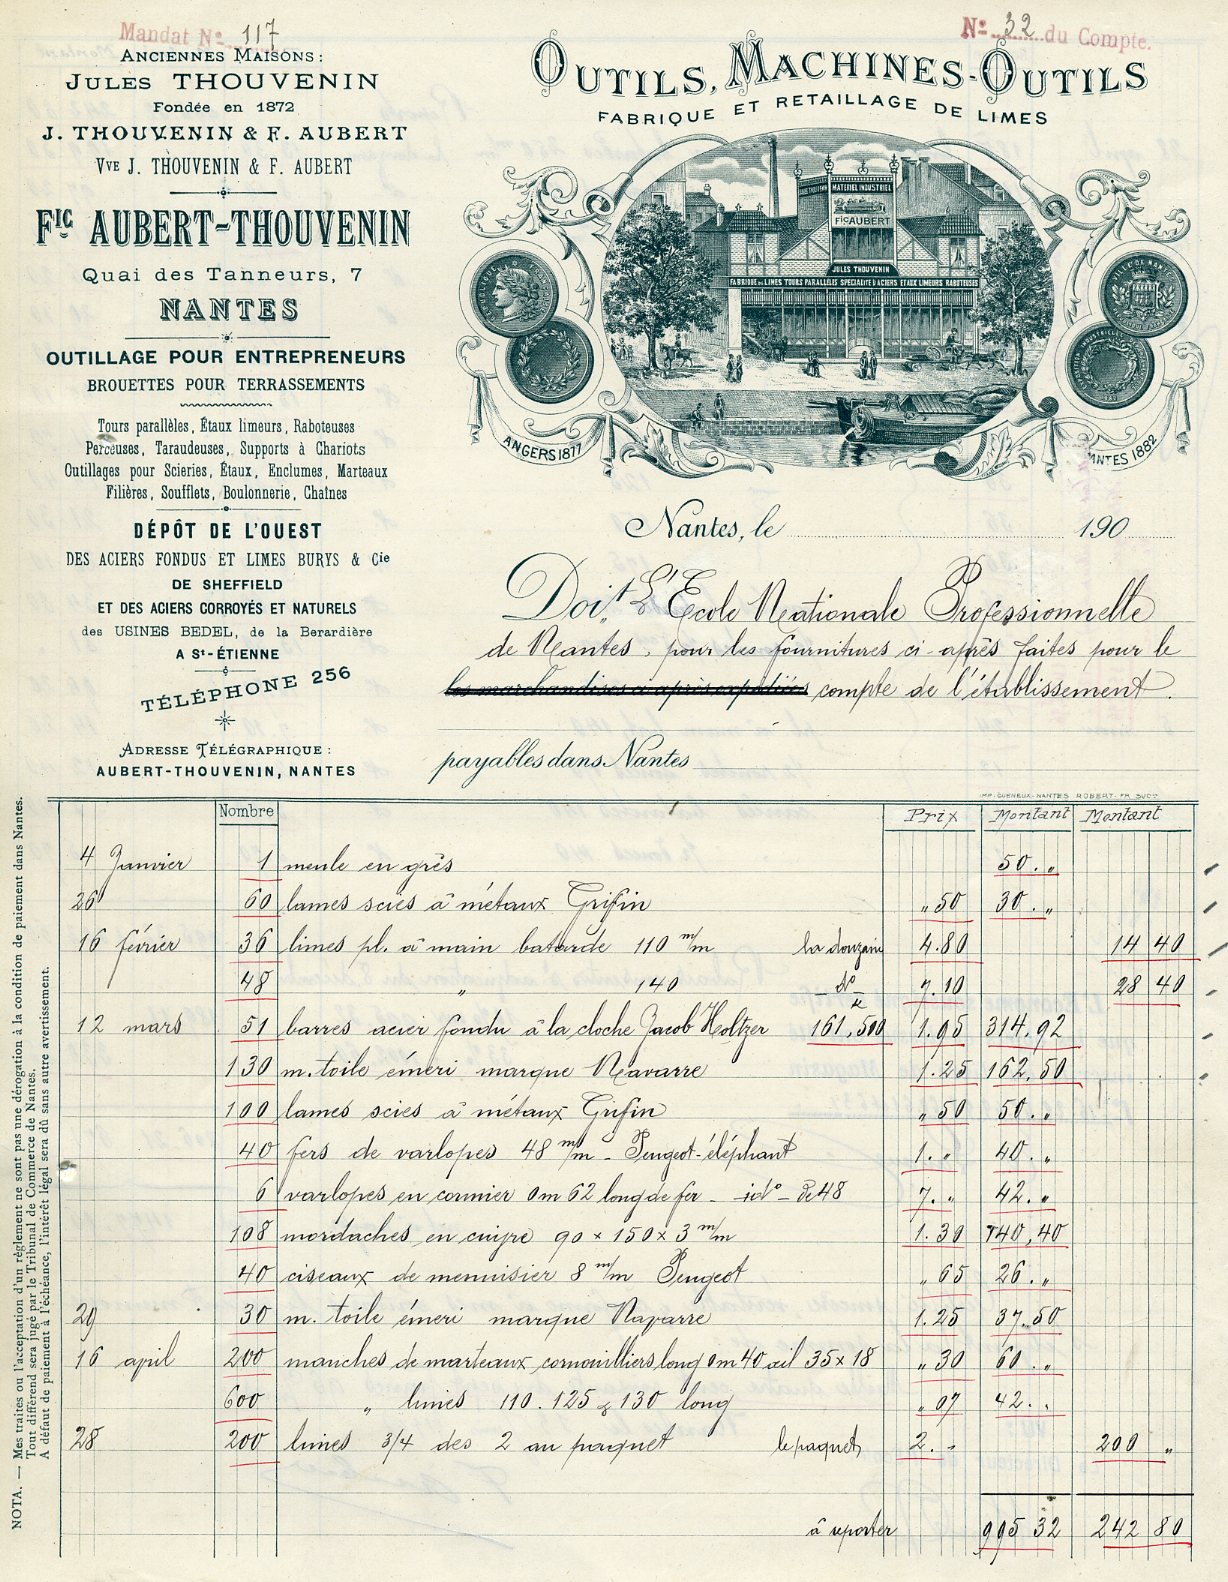 Mandat No 117
No 32 du Compte.
ANCIENNES MAISONS :
JULES THOUVENIN
Fondée en 1872
J. THOUVENIN & F. AUBERT
Vve J. THOUVENIN & F. AUBERT
Fic AUBERT-THOUVENIN
Quai des Tanneurs, 7
NANTES
OUTILLAGE POUR ENTREPRENEURS
BROUETTES POUR TERRASSEMENTS
Tours parallèles, Étaux limeurs, Raboteuses
Perceuses, Taraudeuses, Supports à Chariots
Outillages pour Scieries, Étaux, Enclumes, Marteaux
Filières, Soufflets, Boulonnerie, Chaînes
DÉPÔT DE L'OUEST
DES ACIERS FONDUS ET LIMES BURYS & Cie
DE SHEFFIELD
ET DES ACIERS CORROYÉS ET NATURELS
des USINES BEDEL, de la Berardière
A St-ÉTIENNE
TÉLÉPHONE 256
ADRESSE TÉLÉGRAPHIQUE :
AUBERT-THOUVENIN, NANTES
OUTILS, MACHINES-OUTILS
FABRIQUE ET RETAILLAGE DE LIMES
MATERIEL INDUSTRIEL
Fic AUBERT
JULES THOUVENIN
FABRIQUE DE LIMES TOURS PARALLÈLES SPÉCIALITÉ D'ACIERS ETAUX LIMEURS RABOTEUSES
ANGERS 1877
NANTES 1882
Nantes, le 190
Doit L'Ecole Nationale Professionnelle
de Nantes, pour les fournitures ci-après faites pour le
les marchandises ci après expédiées compte de l'établissement.
payables dans Nantes
IMP. GUENEUX-NANTES ROBERT-FR. SUCr
Nombre Prix Montant Montant
4 Janvier 1 meule en grès 50. „
26 60 lames scies à métaux Grifin „ 50 30. „
16 février 36 limes pl. à main batarde 110 m/m la douzain 4.80 14 40
48 „ 140 do 7.10 28 40
12 mars 51 barres acier fondu à la cloche Jacob Holtzer 161,500 k 1.95 314,92
130 m. toile émeri marque Navarre 1.25 162,50
100 lames scies à métaux Grifin „ 50 50. „
40 fers de varlopes 48 m/m - Peugeot-éléphant 1. „ 40. „
6 varlopes en cormier 0m62 long de fer - ido - de 48 7. „ 42. „
108 mordaches en cuivre 90 x 150 x 3 m/m 1.30 140,40
40 ciseaux de menuisier 8 m/m Peugeot „ 65 26. „
29 30 m. toile émeri marque Navarre 1.25 37.50
16 april 200 manches de marteaux cornouilliers long 0m40 œil 35 x 18 „ 30 60. „
600 „ limes 110. 125 & 130 long „ 07 42. „
28 200 limes 3/4 des 2 au paquet le paquet 2. „ 200 „
à reporter 995 32 242 80
NOTA. — Mes traites ou l'acceptation d'un règlement ne sont pas une dérogation à la condition de paiement dans Nantes.
Tout différend sera jugé par le Tribunal de Commerce de Nantes.
A défaut de paiement à l'échéance, l'intérêt légal sera dû sans autre avertissement.